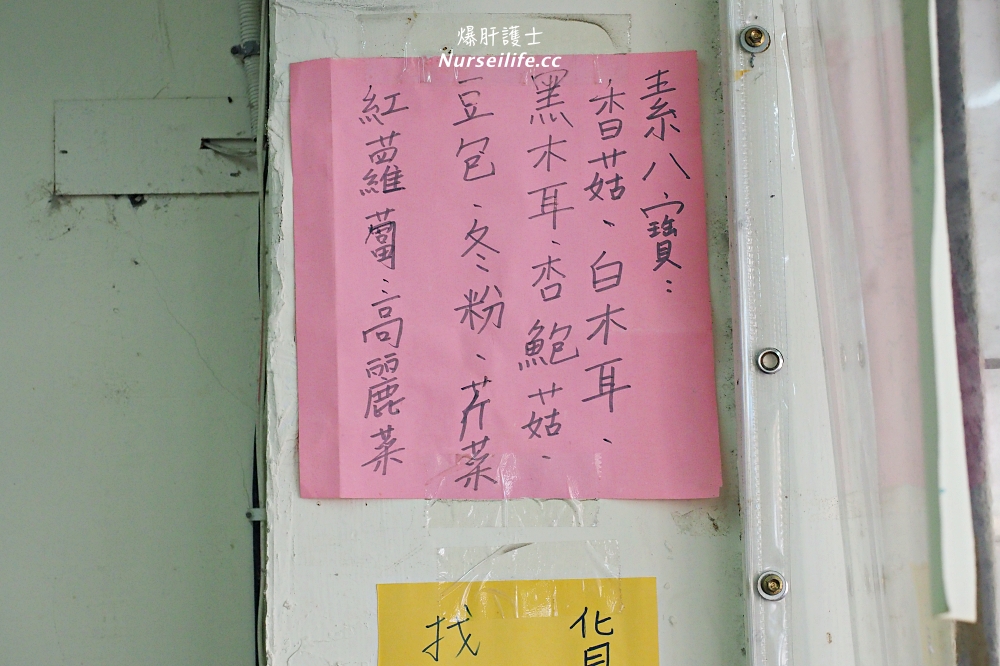 爆肝護士
Nurseilife.cc
素八寶：
香菇、白木耳、
黑木耳、杏鮑菇、
豆包、冬粉、芹菜
紅蘿蔔、高麗菜
貨
找